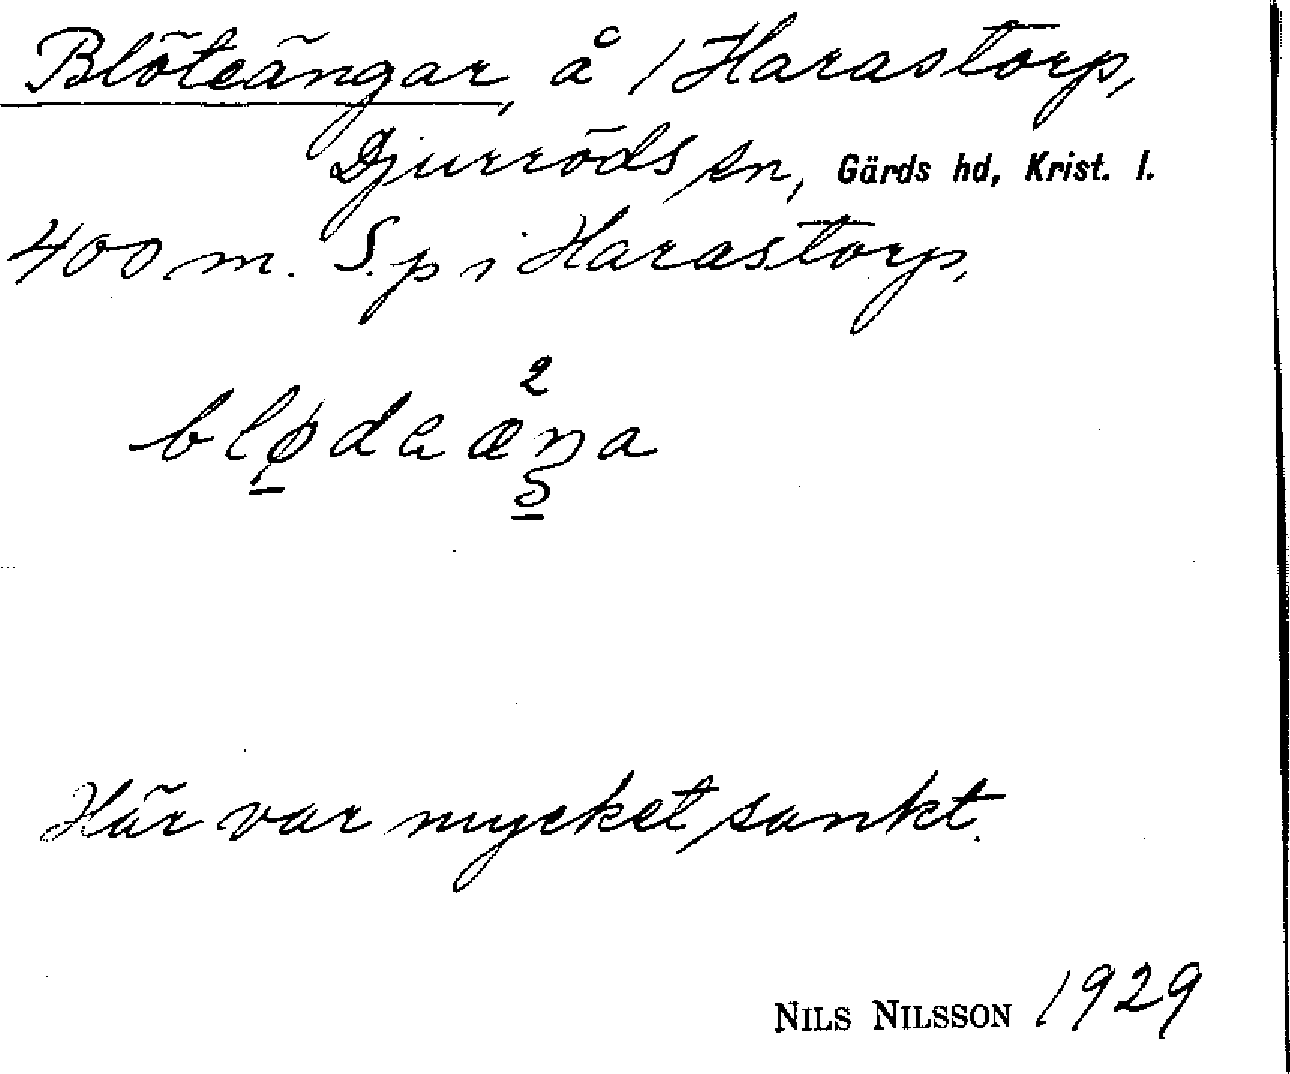 Blöteängar, å 1 Harastorp,
Djurröds sn, Gärds hd, Krist. l.
400 m. S. p i Harastorp.
Här var mycket sankt.
NILS NILSSON 1929